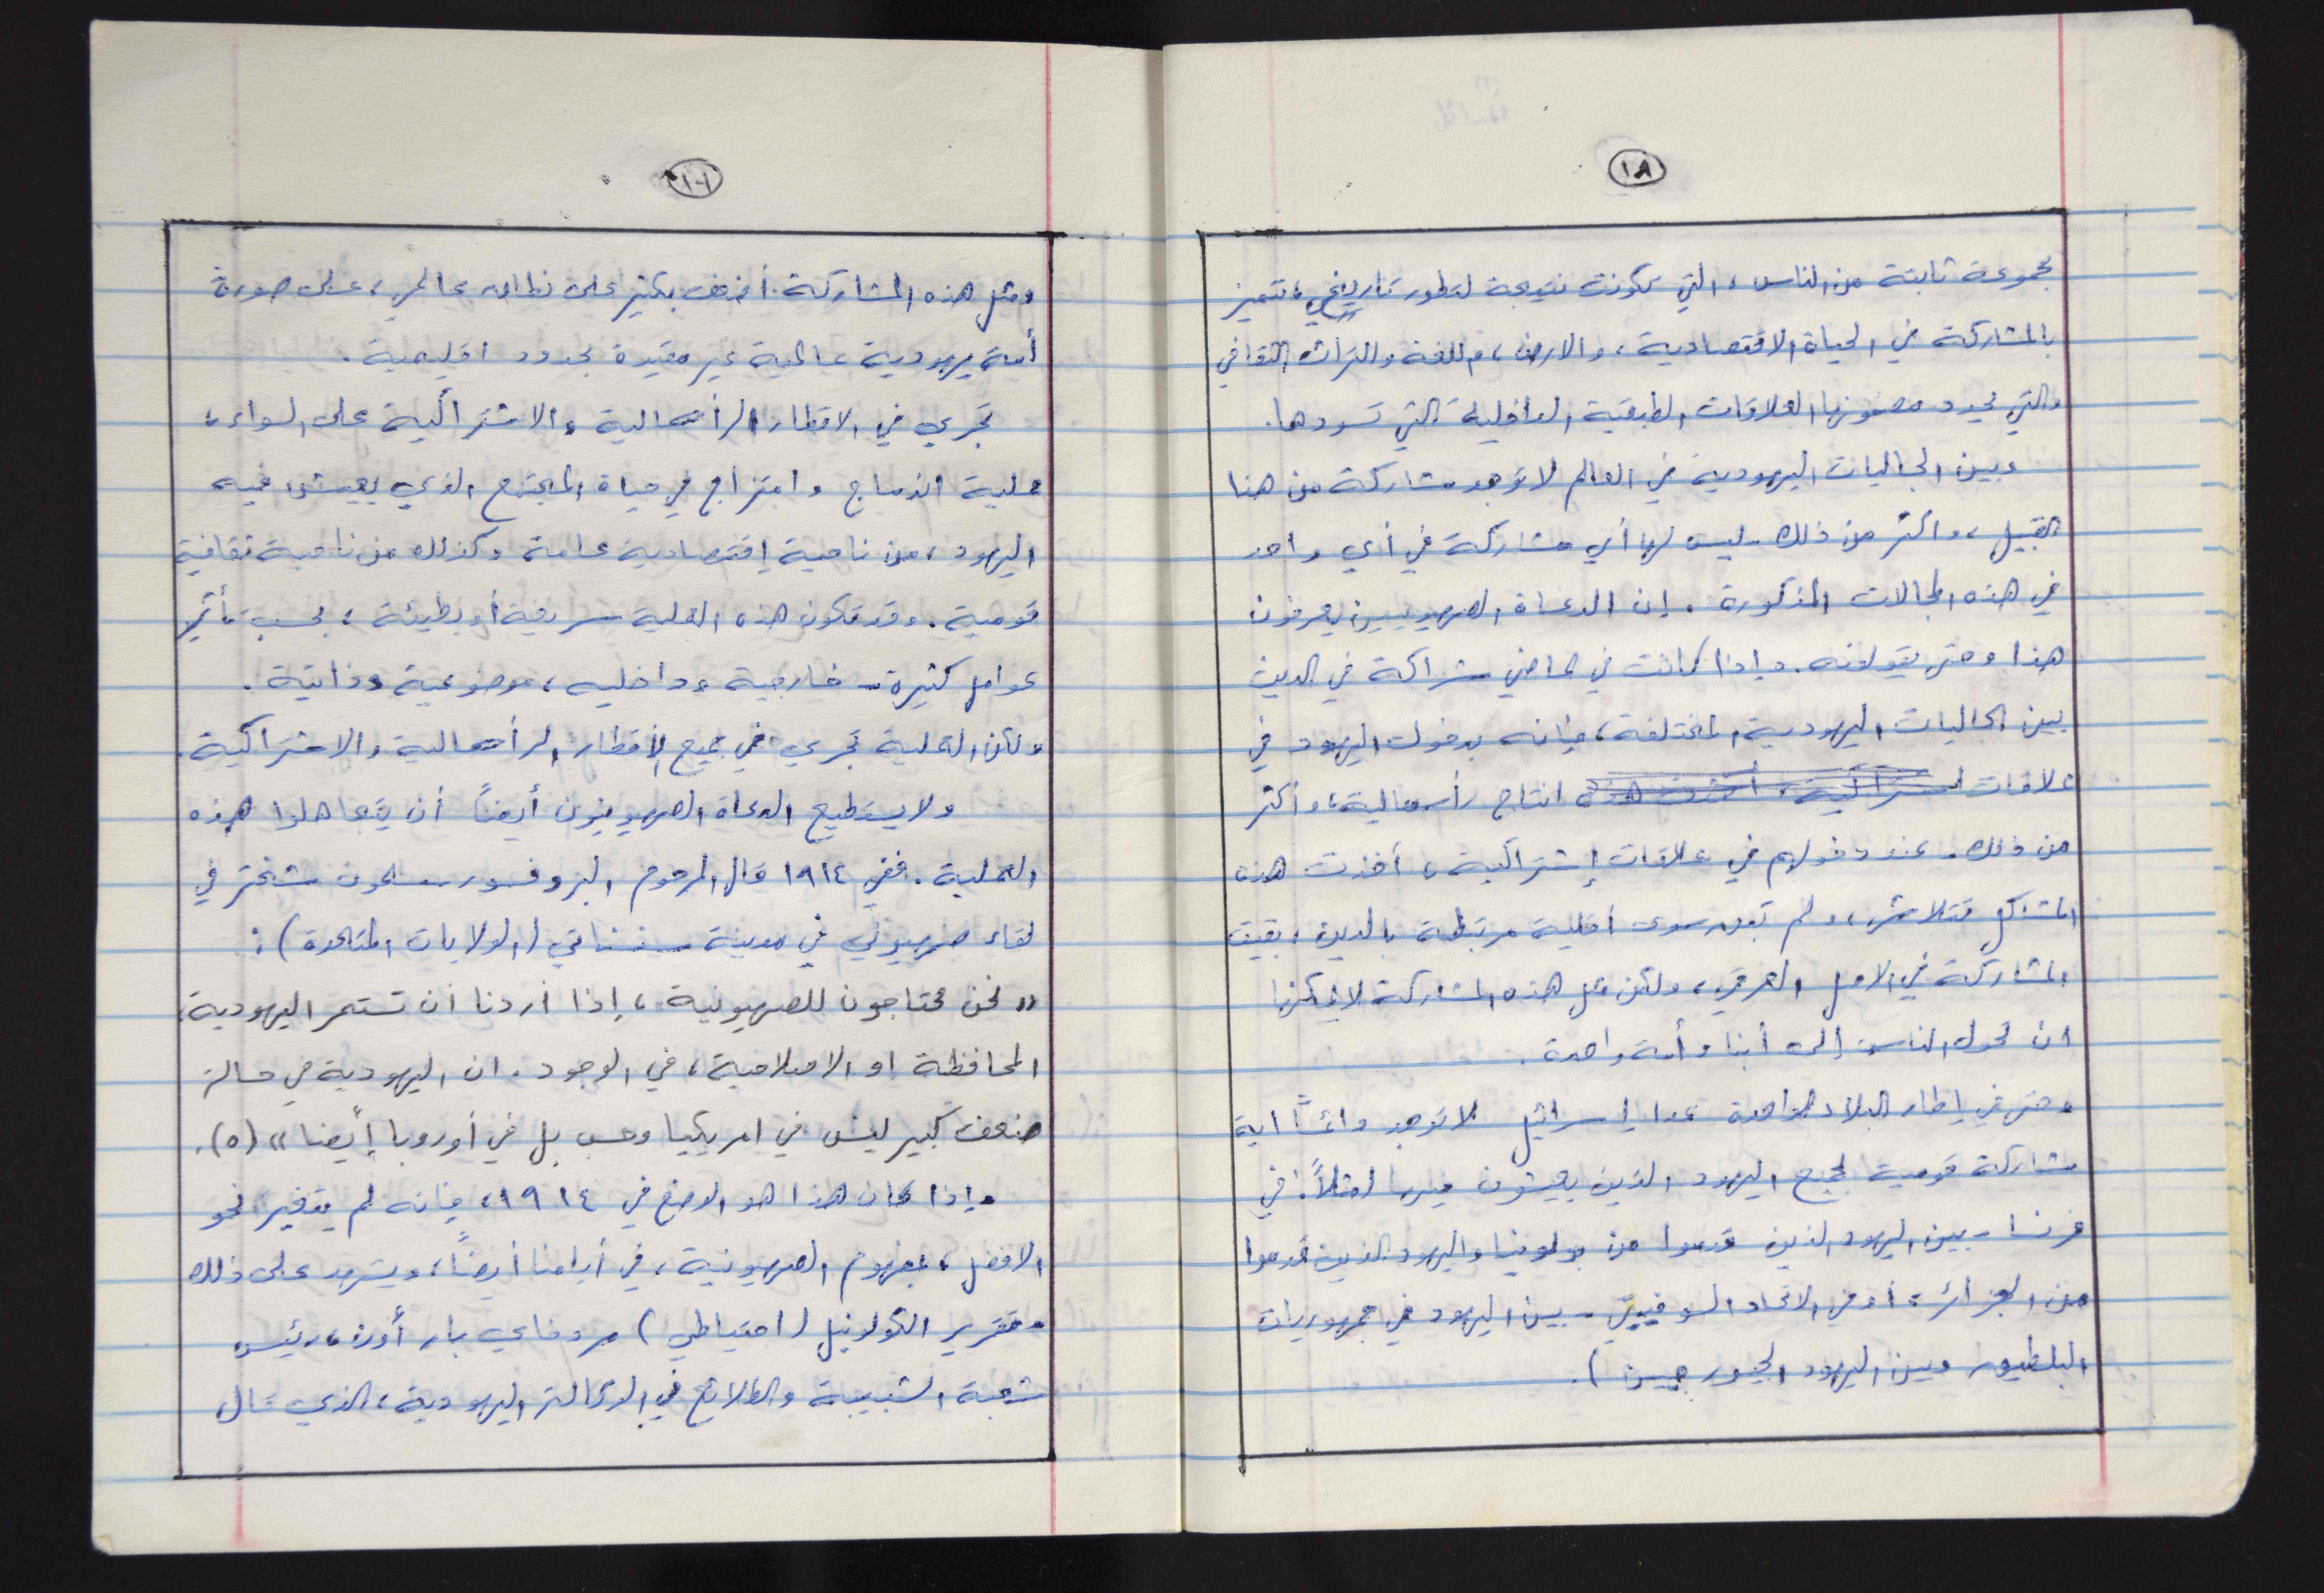 ١٨
مجموعة ثابتة من الناس، التي تكونت نتيجة لتطور تاريخي، تتميز
بالمشاركة في الحياة الاقتصادية، والارض، واللغة والتراث الثقافي
والتي يحدد مضمونها العلاقات الطبقية الداخلية التي تسودها.
وبين الجاليات اليهودية في العالم لا توجد مشاركة من هذا
القبيل، واكثر من ذلك - ليس لها أي مشاركة في أي واحد
في هذه المجالات المذكورة. إن الدعاة الصهيونيين يعرفون
هذا وحتى يقولونه. وإذا كانت في الماضي شراكة في الدين
بين الجاليات اليهودية المختلفة، فإنه بدخول اليهود في
علاقات انتاج رأسمالية، وأكثر
من ذلك. عند دخولهم في علاقات إشتراكية، أخذت هذه
تتلاشى، ولم تبق سوى أقلية مرتبطة بالدين، بقيت
المشاركة في الاصل العرقي، ولكن مثل هذه المشاركة لا يمكنها
ان تحول الناس إلى أبناء أمة واحدة.
وحتى في إطار البلاد الواحدة عدا إسرائيل لا توجد دائماً اية
مشاركة قومية لجميع اليهود الذين يعيشون فيها (مثلاً: في
فرنسا - بين اليهود الذين قدموا من بولونيا واليهود الذين قدموا
من الجزائر، أو في الاتحاد السوفييتي - بين اليهود في جمهوريات
البلطيق وبين اليهود الجيورجيين).
١٩
ومثل هذه المشاركة أضعف بكثير على نطاق عالمي، على صورة
أمة يهودية عالمية غير مقيدة بحدود اقليمية.
تجري في الاقطار الرأسمالية والاشتراكية على السواء،
عملية اندماج وامتزاج في حياة المجتمع الذي يعيش فيه
اليهود، من ناحية إقتصادية عامة وكذلك من ناحية ثقافية
قومية. وقد تكون هذه العملية سريعة أو بطيئة، بحسب تأثير
عوامل كثيرة - خارجية وداخلية، موضوعية وذاتية.
ولكن العملية تجري في جميع الأقطار الرأسمالية والاشتراكية.
ولا يستطيع الدعاة الصهيونيون أيضاً أن يتجاهلوا هذه
العملية. ففي ١٩١٤ قال المرحوم البروفسور سلمون شختر في
لقاء صهيوني في مدينة سنسناتي (الولايات المتحدة):
"نحن محتاجون للصهيونية، إذا أردنا ان تستمر اليهودية،
المحافظة او الاصلاحية، في الوجود. ان اليهودية في حالة
ضعف كبير ليس في امريكيا وحسب بل في أوروبا إيضا" (٥).
وإذا كان هذا هو الوضع في ١٩١٤، فإنه لم يتغير نحو
الافضل، بمفهوم الصهيونية، في أيامنا أيضاً، ويشهد على ذلك
تقرير الكولونيل (احتياطي) مردخاي بار أون، رئيس
شعبة الشبيبة والطلائع في الوكالة اليهودية، الذي قال